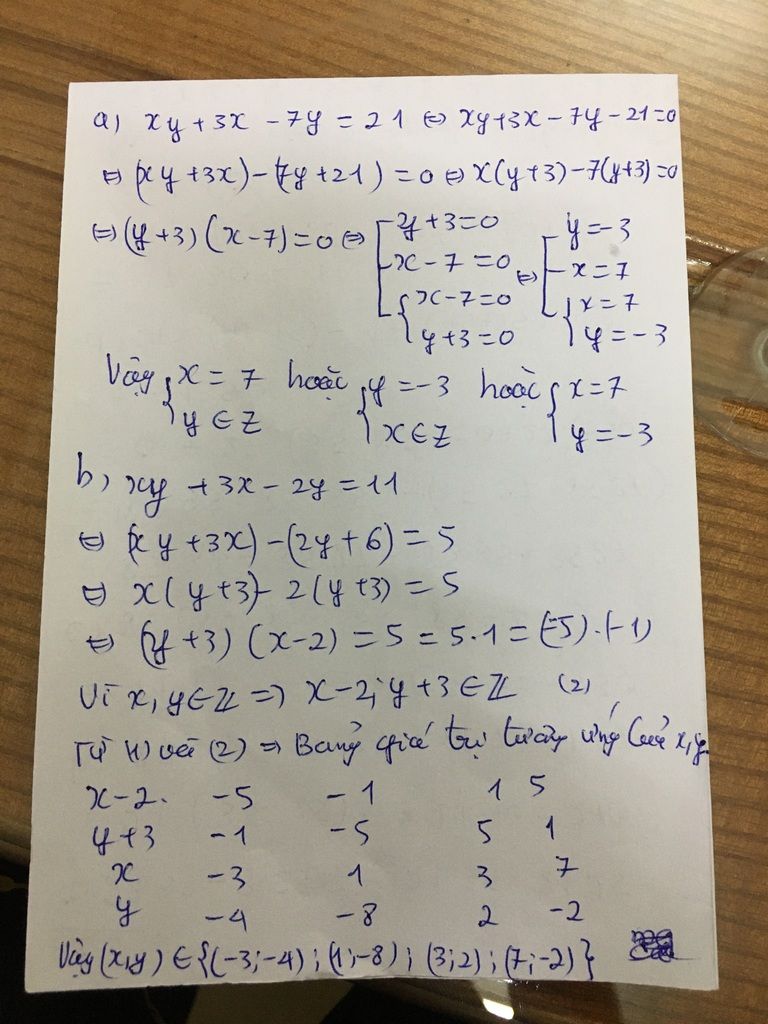 a) xy + 3x - 7y = 21 ⇔ xy + 3x - 7y - 21 = 0
⇔ (xy + 3x) - (7y + 21) = 0 ⇔ x(y+3) - 7(y+3) = 0
⇔ (y+3)(x-7) = 0 ⇔ [ y+3=0 ⇔ [ y=-3
x-7=0 x=7
{ x-7=0 { x=7
y+3=0 y=-3
Vậy { x = 7 hoặc { y = -3 hoặc { x = 7
y ∈ Z x ∈ Z y = -3
b) xy + 3x - 2y = 11
⇔ (xy + 3x) - (2y + 6) = 5
⇔ x(y+3) - 2(y+3) = 5
⇔ (y+3)(x-2) = 5 = 5.1 = (-5).(-1)
Vì x, y ∈ Z ⇒ x-2; y+3 ∈ Z (2)
Từ (1) và (2) ⇒ Bảng giá trị tương ứng của x, y
x-2. -5 -1 1 5
y+3 -1 -5 5 1
x -3 1 3 7
y -4 -8 2 -2
Vậy (x;y) ∈ {(-3;-4); (1;-8); (3;2); (7;-2)}